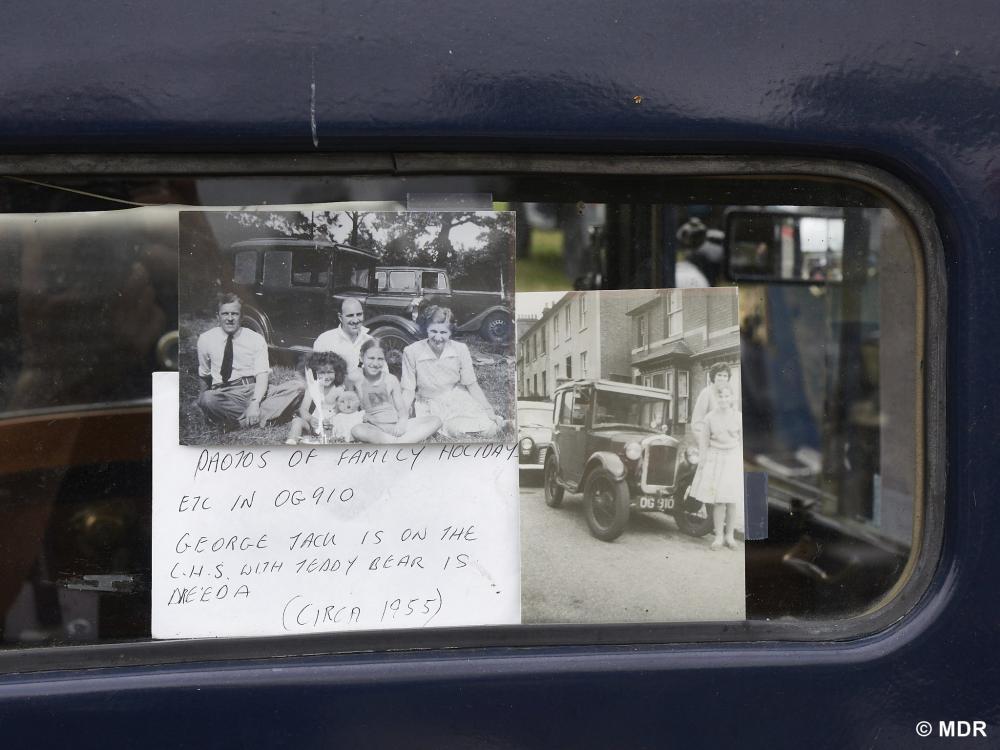 PHOTOS OF FAMILY HOLIDAY
ETC IN OG910
GEORGE JACK IS ON THE
L.H.S. WITH TEDDY BEAR IS
(CIRCA 1955)
OG 910
© MDR